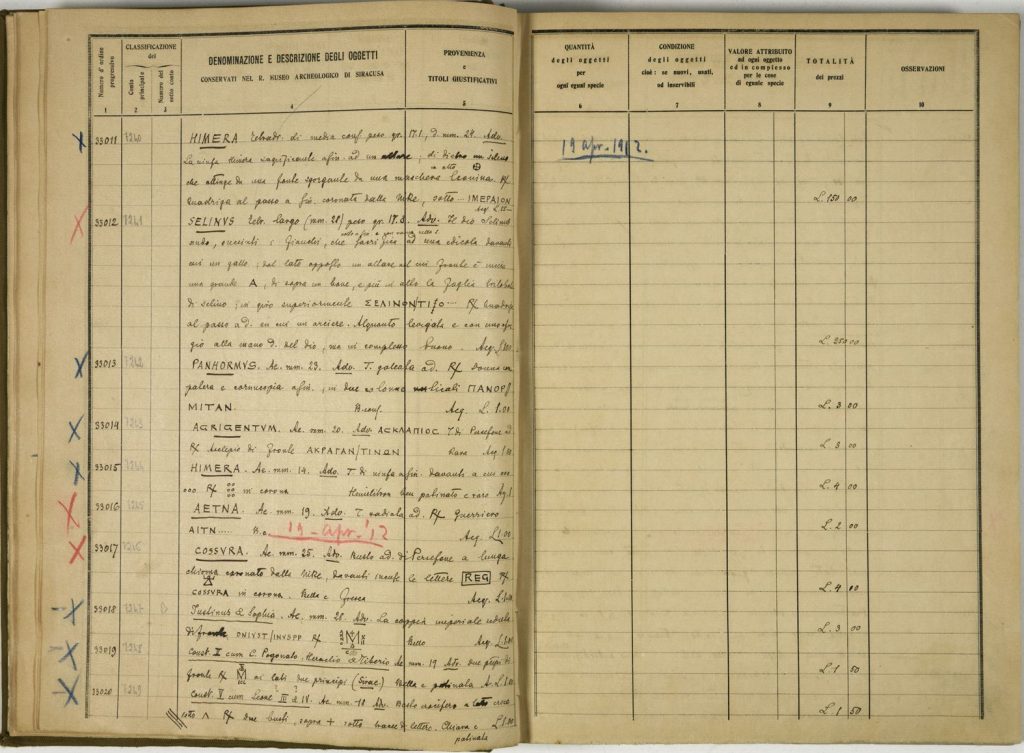 Numero d'ordine progressivo
CLASSIFICAZIONE
del
Conto principale
Numero del sotto conto
DENOMINAZIONE E DESCRIZIONE DEGLI OGGETTI
CONSERVATI NEL R. MUSEO ARCHEOLOGICO DI SIRACUSA
PROVENIENZA
e
TITOLI GIUSTIFICATIVI
QUANTITÀ
degli oggetti
per
ogni eguai specie
CONDIZIONE
degli oggetti
cioè: se nuovi, usati,
od inservibili
VALORE ATTRIBUITO
ad ogni oggetto
ed in complesso
per le cose
di eguale specie
TOTALITÀ
dei prezzi
OSSERVAZIONI
1 2 3 4 5 6 7 8 9 10
33011 1240 HIMERA Tetradr. di media conf. peso gr. 17.1, d. mm. 29. Adv.
La ninfa Himera sagrificante a sin. ad un altare; di dietro un sileno
in alto
che attinge da una fonte sgorgante da una maschera leonina. R/
Quadriga al passo a sin. coronata dalla Nike, sotto ··· IMEPAION
19 apr. 1912.
L. 150 00
33012 1241 SELINVS Tetr. largo (mm. 28) peso gr. 17.3. Adv. Il dio Selinus
nudo, succinti i fianchi, che sacrifica ad una edicola davanti
cui un gallo; dal lato opposto un altare nel cui fronte è
una grande A, di sopra un bove, e più in alto la foglia trilobata
di selino; in giro superiormente ΣΕΛΙΝΟΝΤΙΟ ··· R/ Quadriga
al passo a d. su cui un arciere. Alquanto levigata e con uno
alla mano d. del dio, ma in complesso buono. Acq.
L. 250 00
33013 1242 PANHORMVS. Ae. mm. 23. Adv. T. galeata a d. R/ donna con
patera e cornucopia a sin.; in due colonne verticali ΠΑΝΟΡ
ΜΙΤΑΝ. B. conf. Acq. L. 1.00
L. 3 00
33014 1243 AGRIGENTVM. Ae. mm. 20. Adv. ΑΣΚΛΑΠΙΟΣ T. di Persefone a d.
R/ Asclepio di fronte ΑΚΡΑΓΑΝ/ΤΙΝΩΝ Raro Acq. 1.00
L. 3 00
33015 1244 HIMERA. Ae. mm. 14. Adv. T. di ninfa a sin. davanti a cui
ooo R/ in corona Hemilitron ben patinato e raro Aq. 1.
L. 4 00
33016 1245 AETNA. Ae. mm. 19. Adv. T. radiata a d. R/ Guerriero
AITN..... B.c. Acq. L 1.00
19 - apr. '12
L. 2 00
33017 1246 COSSVRA. Ae. mm. 25. Adv. Busto a d. di Persefone a lunga
chioma coronato dalla Nike, davanti incuse le lettere REG R/
COSSVRA in corona. Bella e fresca Acq. L. 1.00
L. 4 00
33018 1247 B Justinus & Sophia. Ae. mm. 28. Adv. La coppia imperiale seduta
di fronte DNIVST/INVSPP R/ M Bello Acq. L. 1.00
L. 3 00
33019 1248 Const. II cum C. Pogonato. Heraclio & Tiberio Ae mm. 19 Adv. due principi di
fronte R/ M ai lati due principi (Sirac) Bella e patinata A. L. 1.00
L. 1 50
33020 1249 Const. V cum Leone III & IV. Ae. mm. 18 Adv. Busto crocifero a lato croce
sotto Λ R/ due busti, sopra + sotto tracce di lettere. Chiara e L 1.00
patinata
L. 1 50